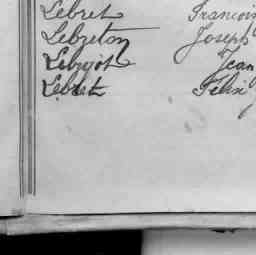 Lebret François
Lebreton Joseph
Lebigot Jean
Lebret Félix